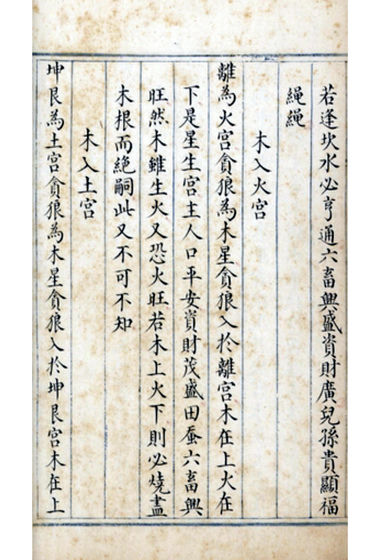 若逢坎水必亨通六畜興盛資財廣兒孫貴顯福
繩繩
木入火宮
離為火宮貪狼為木星貪狼入於離宮木在上火在
下是星生宮主人口平安資財茂盛田蚕六畜興
旺然木雖生火又恐火旺若木上火下則必燒盡
木根而絶嗣此又不可不知
木入土宮
坤艮為土宮貪狼為木星貪狼入於坤艮宮木在上